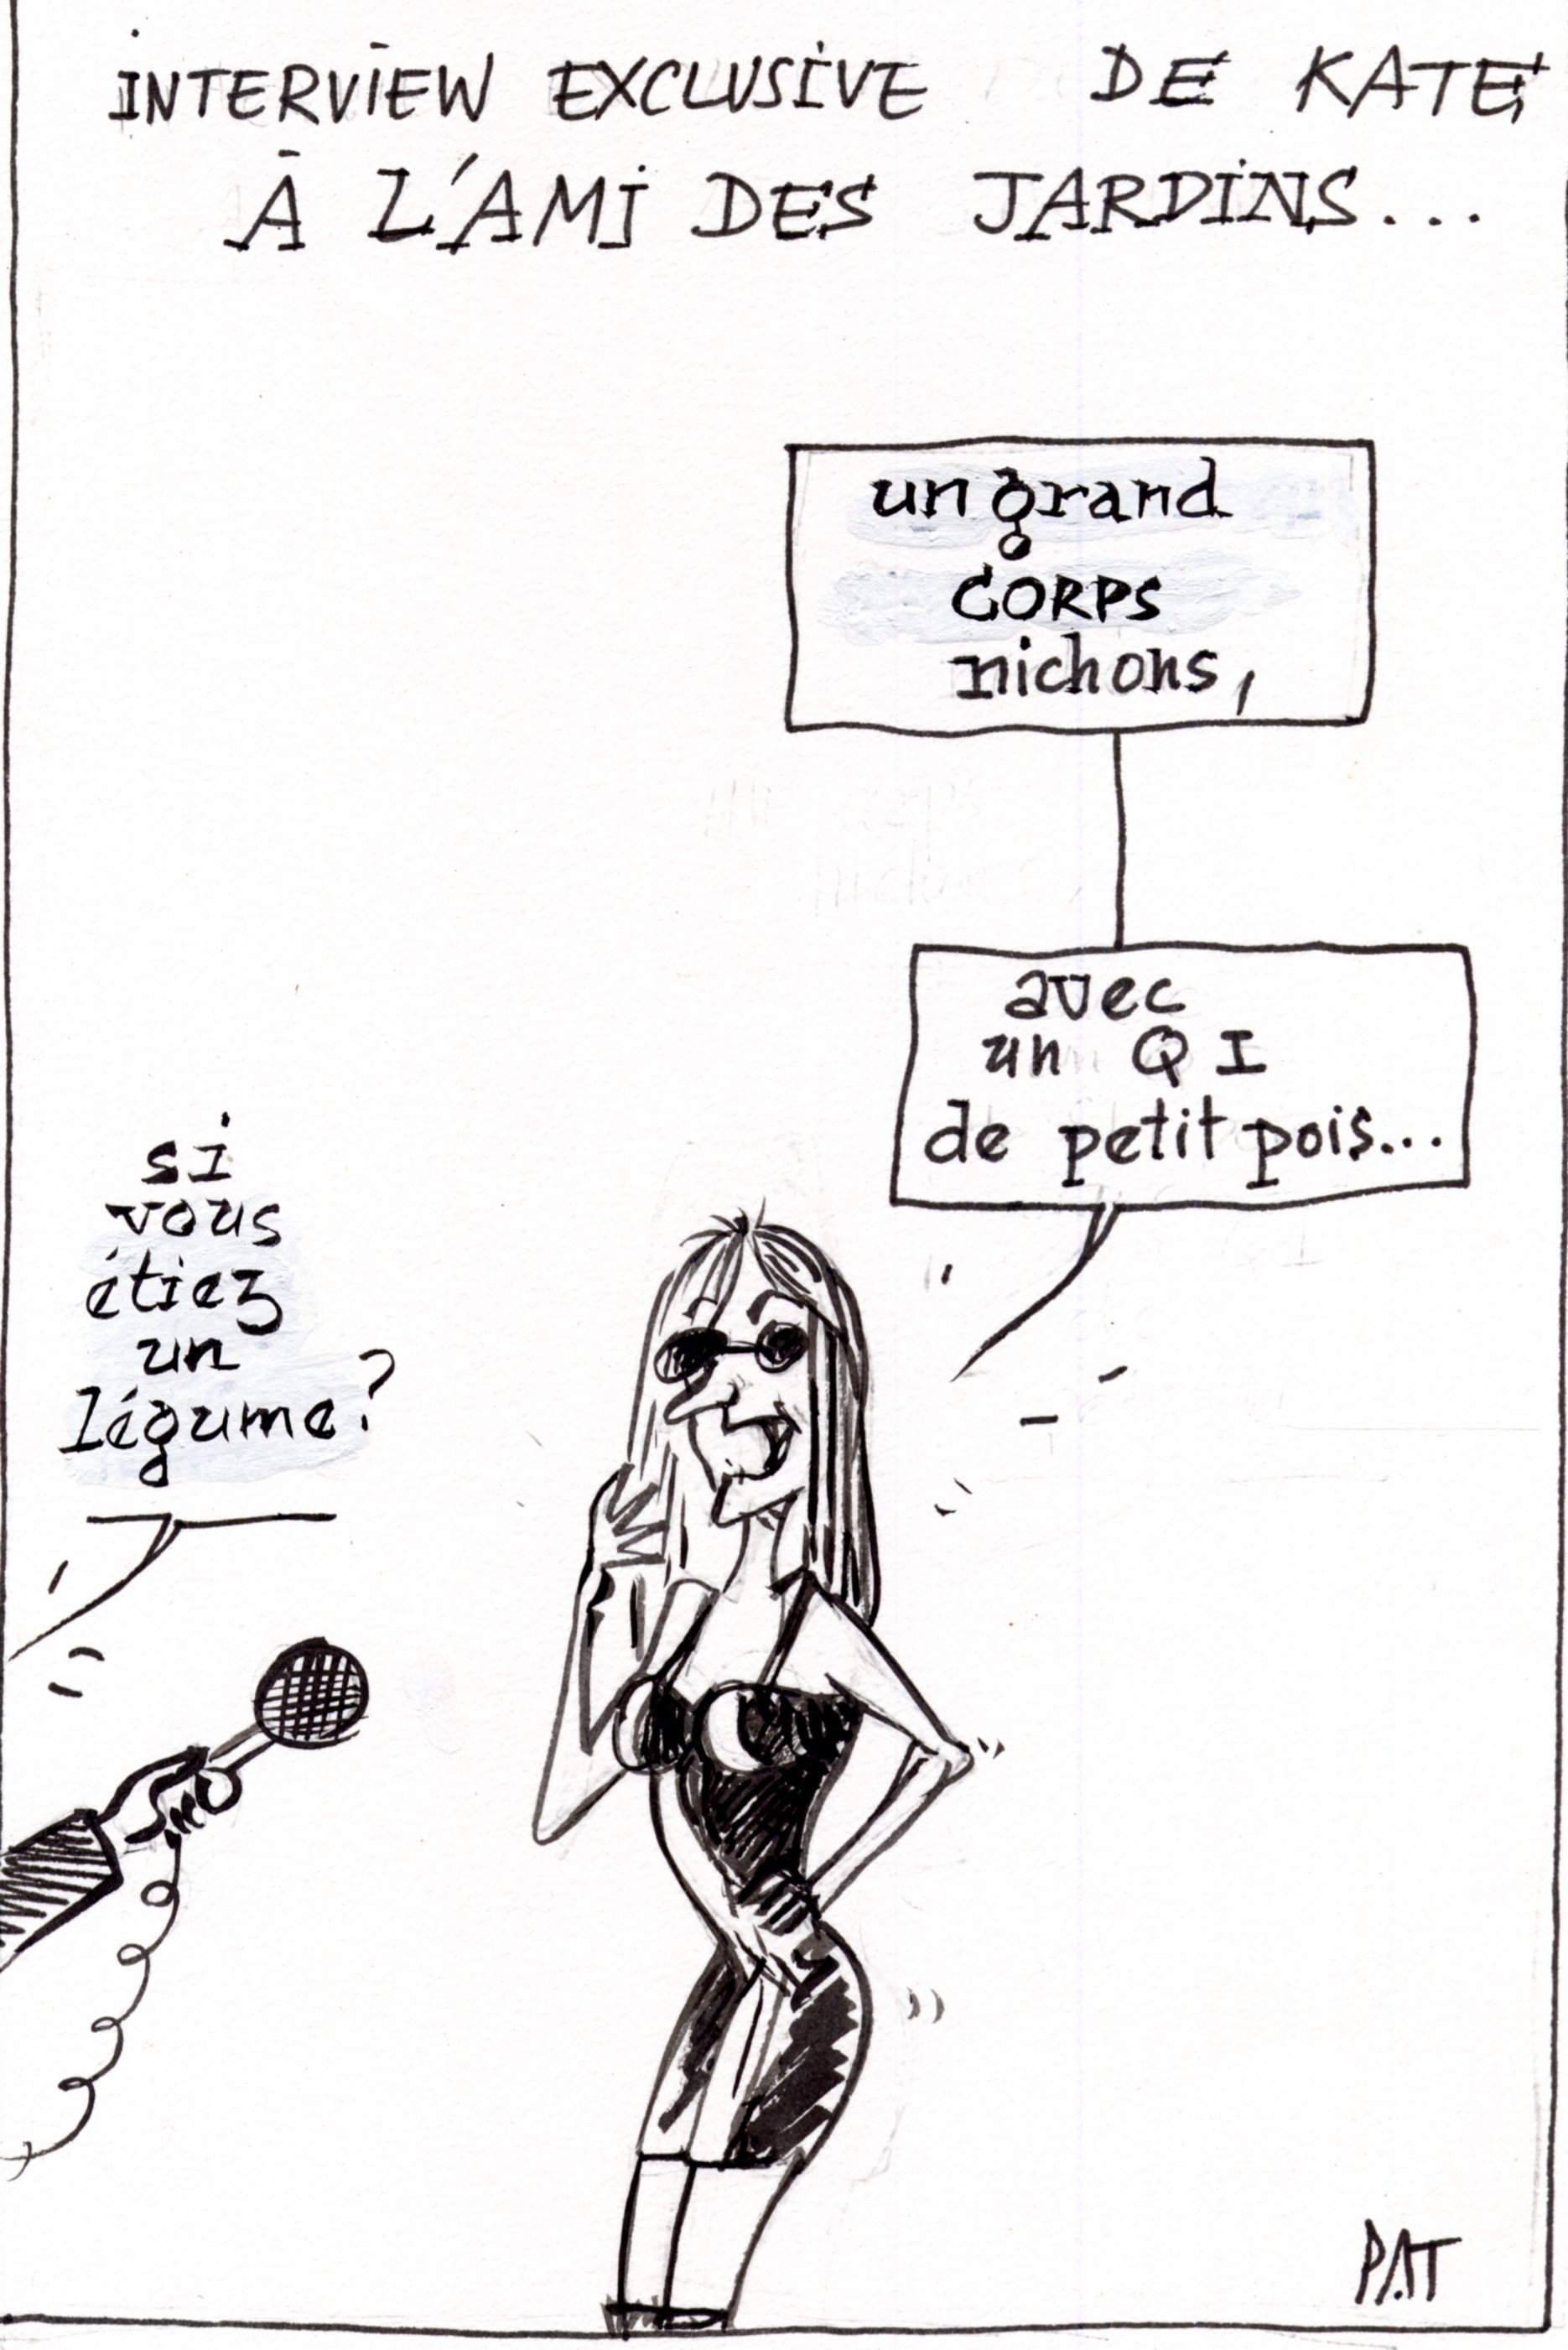 INTERVIEW EXCLUSIVE DE KATE
À L'AMI DES JARDINS...
un grand
CORPS
nichons,
avec
un QI
de petit pois...
si
vous
étiez
un
légume?
PAT